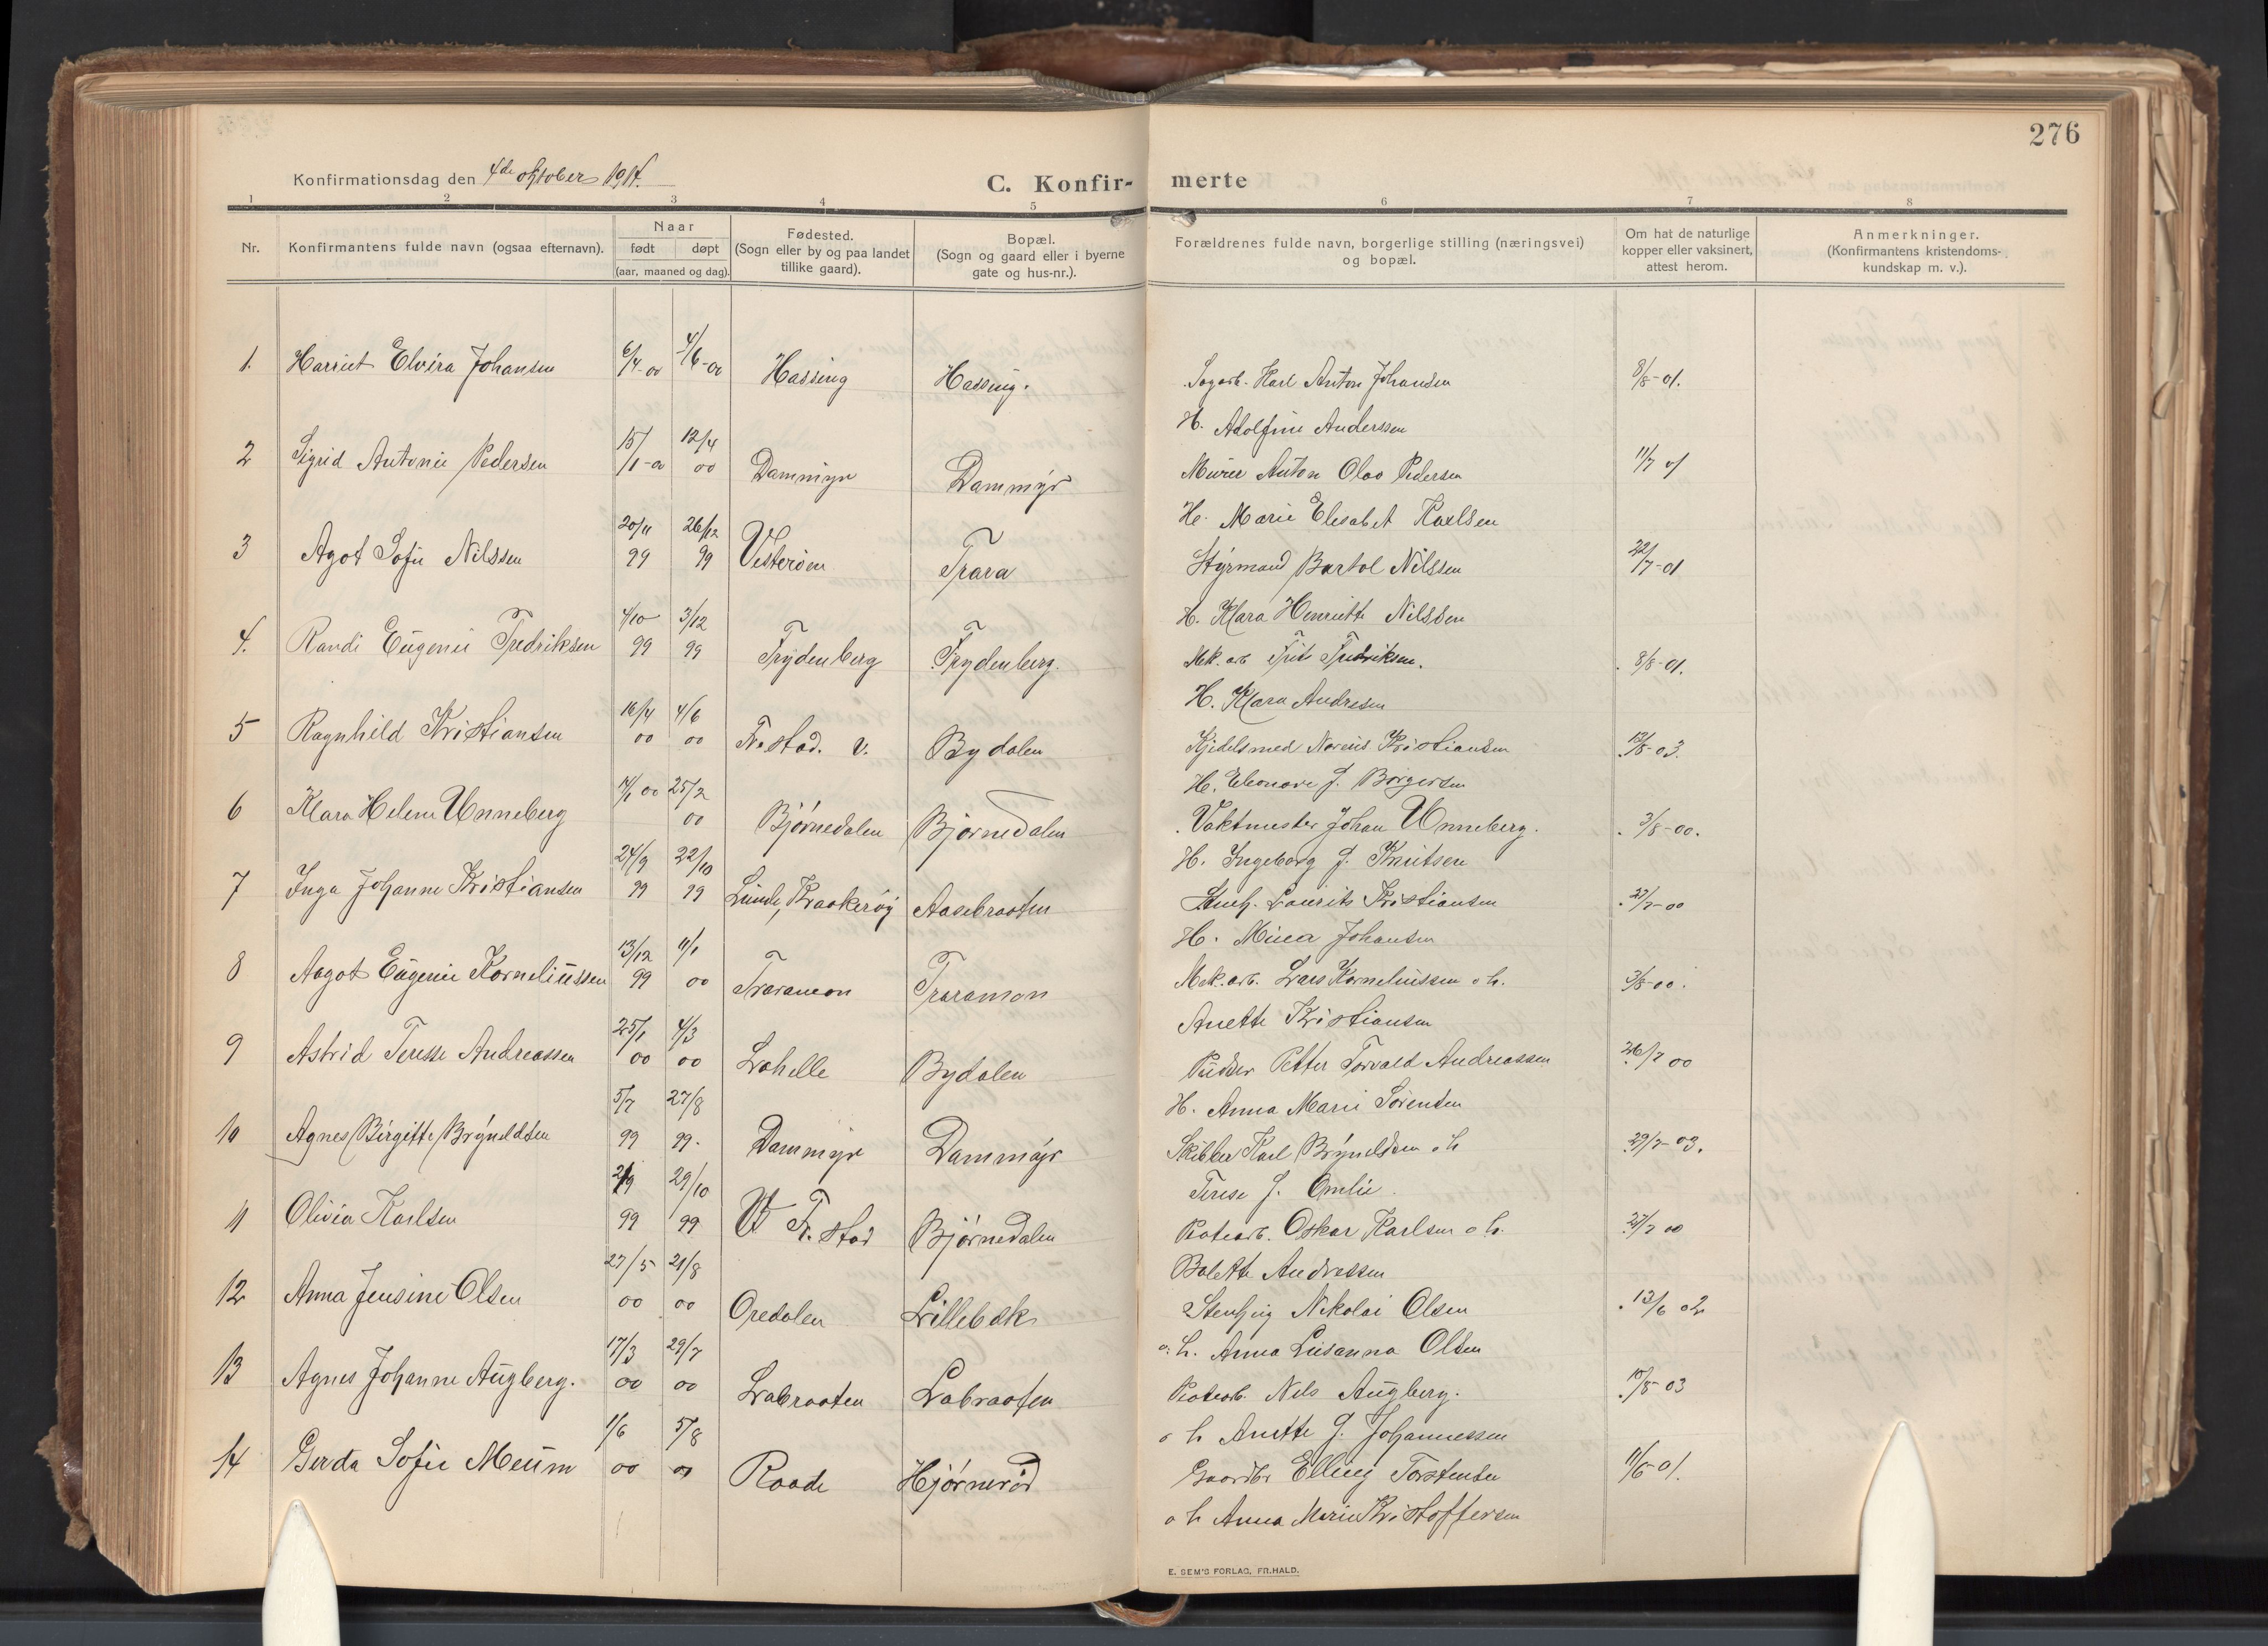 276
Konfirmationsdag den 4de oktober 1914.
C. Konfir- merte
1 2 3 4 5 6 7 8
Nr.
Konfirmantens fulde navn (ogsaa efternavn).
Naar
født døpt
(aar, maaned og dag).
Fødested.
(Sogn eller by og paa landet
tillike gaard).
Bopæl.
(Sogn og gaard eller i byerne
gate og hus-nr.).
Forældrenes fulde navn, borgerlige stilling (næringsvei)
og bopæl.
Om hat de naturlige
kopper eller vaksinert,
attest herom.
Anmerkninger.
(Konfirmantens kristendoms-
kundskap m. v.).
1. Harriet Elvira Johansen 6/4-00 4/6-00 Hassing Hassing. Sagarb. Karl Anton Johansen 8/8-01.
H. Adolfine Anderssen
2 Sigrid Antonie Pedersen 15/1-00 12/4 00 Dammyr Dammyr Murer Anton Olav Pedersen 11/7 01
H. Marie Elesabet Karlsen
3 Agot Sofie Nilssen 20/11 99 26/12 99 Vesterøen Trara Styrmand Bartol Nilssen 22/7-01
H. Klara Henriette Nilssen
4. Randi Eugenie Fredriksen 4/10 99 3/12 99 Frydenberg Frydenberg. Mek. arb Fritz Fredriksen. 8/8-01.
H. Klara Andresen
5 Ragnhild Kristiansen 16/4 00 4/6 00 Fr.stad. v. Bydalen Kjedelsmed Norenis Kristiansen 13/8-03.
H. Eleonore f. Børgersen
6 Klara Helene Unneberg 14/1 00 25/2 00 Bjørnedalen Bjørnedalen Vaktmester Johan Unneberg. 3/8-00.
H. Ingeborg f. Knutsen
7 Inga Johanne Kristiansen 24/9 99 22/10 99 Lunde, Kraakerøy Aasebraaten Stenh. Laurits Kristiansen 27/7-00
H. Mina Johansen
8 Aagot Eugenie Korneliussen 13/12 99 4/1 00 Traramon Traramon Mek. arb. Lars Korneliussen o h. 3/8-00.
Anette Kristiansen
9 Astrid Terese Andreassen 25/1 00 4/3 00 Lahelle Bydalen Pudser Petter Torvald Andreassen 26/7 00
H. Anna Marie Sørensen
10 Agnes Birgitte Brynildsen 5/7 99 27/8 99. Dammyr Dammyr Skibber Karl Brynildsen o h 29/7-03.
Terese f. Omlie.
11 Olivia Karlsen 2/9 99 29/10 99 V Fr.stad Bjørnedalen Potearb. Oskar Karlsen o h. 27/7 00
Bolette Andressen
12 Anna Jensine Olsen 27/5 00 21/8 00 Oredalen Lillebæk Stenhug Nikolai Olsen 13/6 02
o. h. Anna Lusanna Olsen
13 Agnes Johanne Augberg. 17/3 00 29/7 00 Labraaten Labraaten Potearb. Nils Augberg. 10/8-03
o h Anette f. Johannessen
14 Gerda Sofie Meum 1/6 00 5/8 00 Raade Hjørnerød Gaardbr Elling Torstensen 11/6-01.
o h Anna Marie Kristoffersen
E. SEM'S FORLAG, FR.HALD.